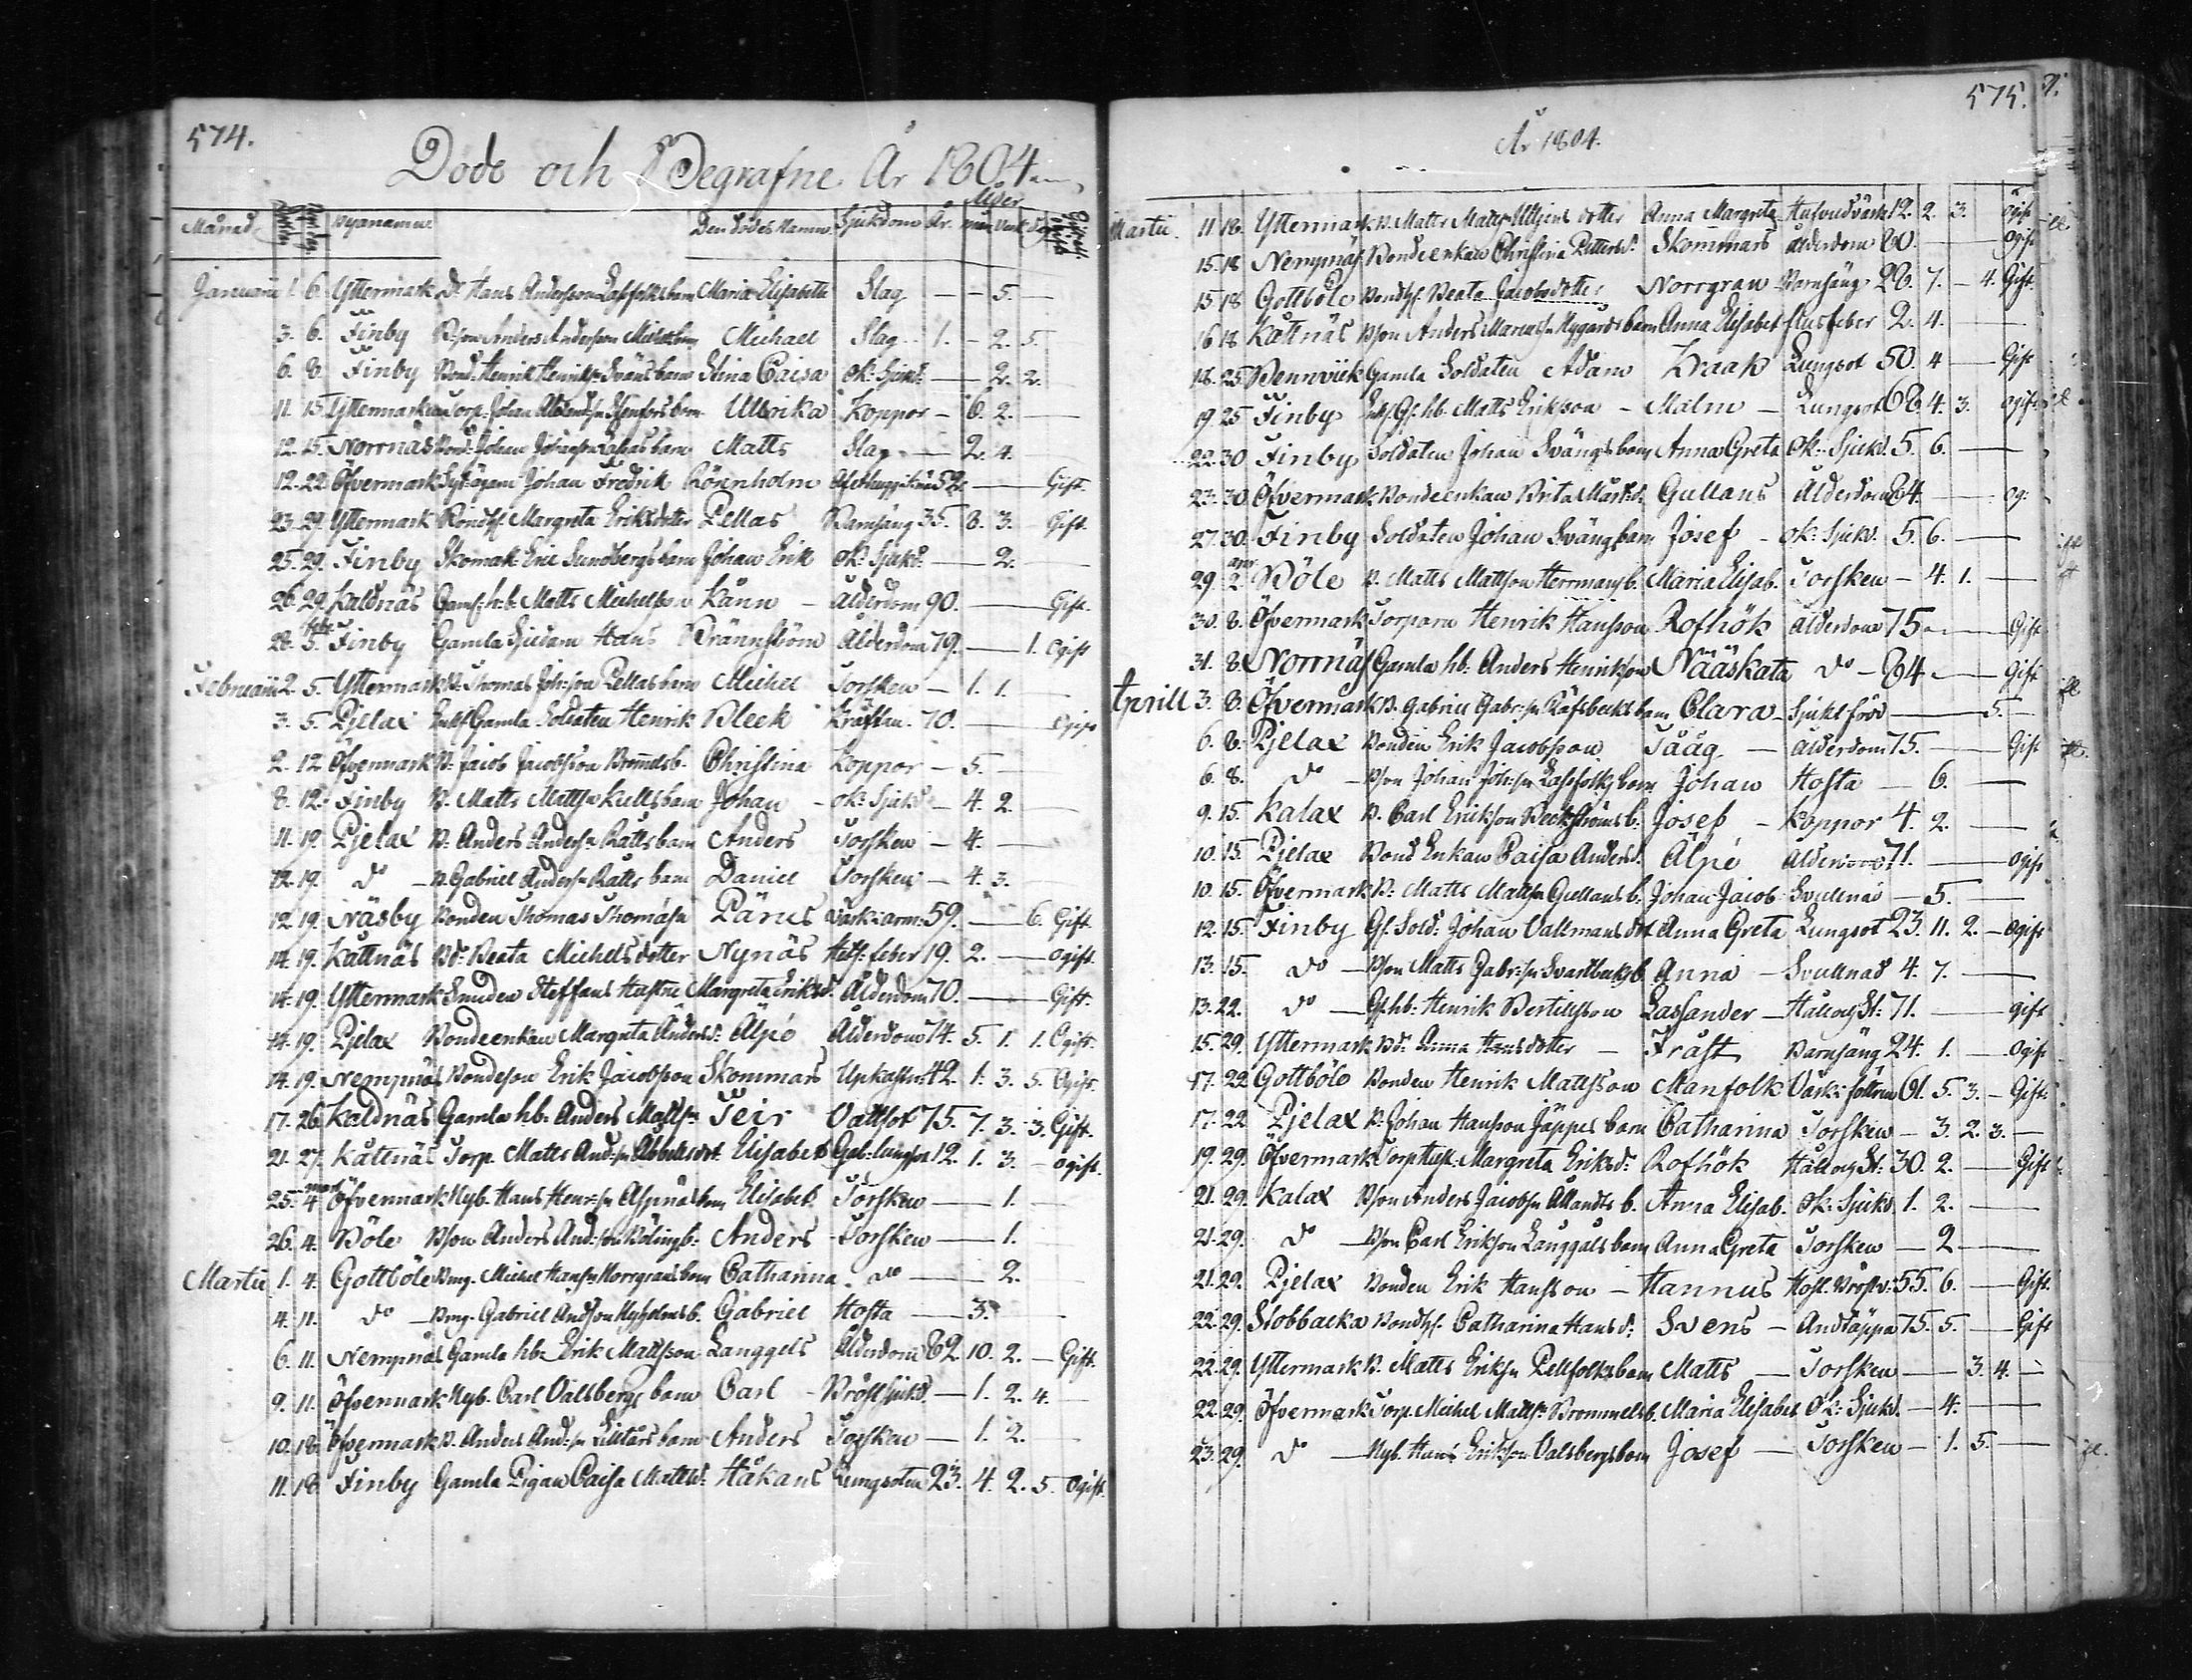 574.
Döde och Begrafne År 1804
Ålder
Månad. Byanamn Den dödes Namn Sjukdom År. mån Veck dag
Januarii 1. 6. Yttermark Dr. Hans Andersson Lassfolks barn Maria Elisabeth Slag — — 5. —
3. 6. Finby Bson Anders Andersson barn Michael Slag 1. - 2. 5.
6. 8. Finby Bond: Henrik Henriks: Sväns barn Stina Caisa Ok: Sjukd: — 2. 2.
11. 15. Yttermark Torp: Johan barn Ullrika Koppor - 6. 2.
12. 15. Norrnäs Bond: Johan Johansson barn Matts Slag — 2. 4.
12. 22. Öfvermark Johan Fredrik Rönnholm 52. — Gift.
23. 29. Yttermark Bondh: Margreta Eriksdotter Pellas Barnsäng 35. 8. 3. - Gift.
25. 29. Finby Skomak: Eric Sundbergs barn Johan Erik Ok: Sjukd: — 2. —
26. 29. Kaldnäs Gaml: h:b: Matts Michelsson Känn - Ålderdom 90. — Gift.
28. febr. 5. Finby Gamla Hans Brännström Ålderdom 79. — 1. Ogift
Februarii 2. 5. Yttermark B: Thomas Joh:son Pellas barn Michel Torsken - 1. 1.
3. 5. Pjelax Enkl: Gamla Soldaten Henrik Bleek Kräftan 70. — Ogift
2. 12. Öfvermark B: Jacob Jacobsson Brommels b. Christina Koppor - 5. -
8. 12. Finby B. Matts Mattss: Kulls barn Johan - ok: Sjukd - 4. 2.
11. 19. Pjelax B: Anders Anders:n Rätts barn Anders Torsken - 4. —
12. 19. do - B. Gabriel Anders:n Rätts barn Daniel Torsken - 4. 3.
12. 19. Näsby Bonden Thomas Thomas:n Pärus Värk i arm: 59. — 6. Gift.
14. 19. Kåttnäs Bd: Beata Michelsdotter Nynäs Hets: feber 19. 2. — ogift.
14. 19. Yttermark Smeden Steffans Hustru Margreta Eriksd: Ålderdom 70. — Gift.
14. 19. Pjelax Bondeenkan Margreta Andersd: Alpé Ålderdom 74. 5. 1. 1. Ogift.
14. 19. Nempnäs Bondeson Erik Jacobsson Skommars Upkastn: 42. 1. 3. 5. Ogift.
17. 26. Kaldnäs Gamla hb: Anders Matts:n Teir Vattsot 75. 7. 3. 3. Gift.
21. 27. Kåttnäs Torp. Matts And:sn dot: Elisabet lungsot 12. 1. 3. - ogift.
25. mart. 4. Öfvermark Nyb. Hans Henr:sn Aspnäs barn Elisabet Torsken — 1. —
26. 4. Böle Bson Anders And:son Bölings b: Anders Torsken — 1. -
Martii 1. 4. Gottböle Bmg. Michel Hans:n Norrgrans barn Catharina - do — 2. -
4. 11. do - Bmg. Gabriel Andson Nyholms b. Gabriel Hosta — 3. -
6. 11. Nempnäs Gamla hb: Erik Mattsson Langgels Ålderdom 82. 10. 2. - Gift.
9. 11. Öfvermark Nyb. Carl Valsbergs barn Carl - Bröstsjukd. - 1. 2. 4. -
10. 18. Öfvermark B. Anders And:sn Lilltårs barn Anders Torsken - 1. 2.
11. 18. Finby Gamla Pigan Caisa Mattsd: Håkans Lungsoten 23. 4. 2. 5. Ogift.
575.
År 1804.
Martii. 11. 18. Yttermark B. Matts Matts: dotter Anna Margreta Hufvudvärk 12. 2. 3. Ogift
15. 18. Nempnäs Bondeenkan Christina Pettersd: Skommars ålderdom 80. — Ogift
15. 18. Gottböle Bondh: Beata Jacobsdotter Norrgran Barnsäng 28. 7. - 4. Gift.
16. 18. Kåttnäs Bson Anders Nygårds barn Anna Elisabet flussfeber 2. 4. —
18. 25. Bennvick Gamla Soldaten Adam Kraak Lungsot 50. 4 — Gift
19. 25. Finby hb. Matts Eriksson - Malm - Lungsot 68. 4. 3. Ogift
22. 30. Finby Soldaten Johan Svängs barn Anna Greta Ok: Sjukd. 5. 6. —
23. 30. Öfvermark Bondeenkan Brita Gullans Ålderdom 84. — og:
27. 30. Finby Soldaten Johan Svängs barn Josef - ok: Sjukd. 5. 6. —
29. apr 2. Böle B. Matts Mattson Herrmans b. Maria Elisab. Torsken - 4. 1. —
30. 8. Öfvermark Torparn Henrik Hansson Rofhök Ålderdom 75 — Gift
31. 8. Norrnäs Gamla hb: Anders Henrikson Nääskata do - 84 — Gift
Aprill 3. 8. Öfvermark B. Gabriel Gabr:sn Räfsbecks barn Clara - Sjukl född — 5. -
6. 8. Pjelax Bonden Erik Jacobsson Tååg - ålderdom 75. — Gift
6. 8. do - Bson Johan Joh:sn Lassfolks barn Johan Hosta — 6. —
9. 15. Kalax B. Carl Erikson Beckströms b: Josef - Koppor 4. 2. —
10. 15. Pjelax Bond Enkan Caisa Andersd: Alpé Ålderdom 71. — Ogift
10. 15. Öfvermark B: Matts Matts:n Gullans b. Johan Jacob Svullnad — 5. —
12. 15. Finby Gl. Sold: Johan Vallmans dot Anna Greta Lungsot 23. 11. 2. - Ogift
13. 15. do - Bson Matts Gabr:sn Svartbecks b. Anna - Svullnad 4. 7. —
13. 22. do - Gl.hb: Henrik Bertillsson Lassander - Håll och St: 71. — gift
15. 29. Yttermark Bd: Anna Hansdotter - Fräst Barnsäng 24. 1. — Ogift
17. 22. Gottböle Bonden Henrik Mattsson Manfolk Värk i 61. 5. 3. - Gift
17. 22. Pjelax B. Johan Hansson Jäppes barn Catharina Torsken - 3. 2. 3. —
19. 29. Öfvermark Torp Hust: Margreta Eriksd: Rofhök Håll och St: 30. 2. — Gift
21. 29. Kalax Bson Anders Jacobs:n b. Anna Elisab. Ok: Sjukd 1. 2. —
21. 29. do - Bson Carl Erikson Långgåls barn Anna Greta Torsken - 2 —
21. 29. Pjelax Bonden Erik Hansson - Hannus Host. Bröstv: 55. 6. — Gift.
22. 29. Stobbacka Bondh: Catharina Hansd: Svens - Andtäppa 75. 5. — Gift
22. 29. Yttermark B. Matts Eriks:n Pellfolks barn Matts - Torsken — 3. 4. —
22. 29. Öfvermark Torp. Michel Matts:n Brommels b. Maria Elisabet Ok: Sjukd. - 4. —
23. 29. do - Nyb. Hans Erikson Valsbergs barn Josef - Torsken - 1. 5. —